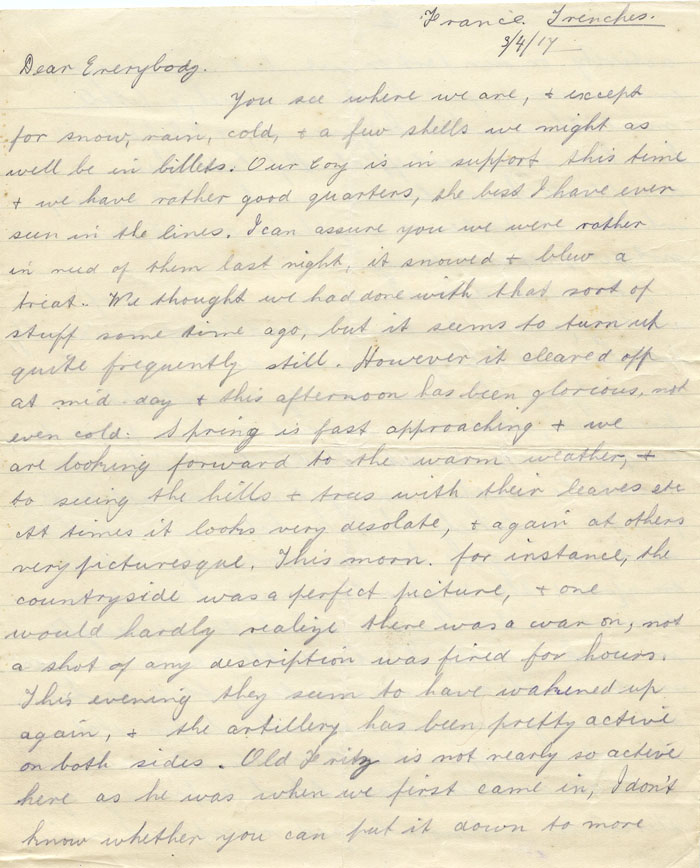 France. Trenches.
3/4/17
Dear Everybody.
You see where we are, & except
for snow, rain, cold, & a few shells we might as
well be in billets. Our Coy is in support this time
& we have rather good quarters, the best I have ever
seen in the lines. I can assure you we were rather
in need of them last night, it snowed & blew a
treat. We thought we had done with that sort of
stuff some time ago, but it seems to turn up
quite frequently still. However it cleared off
at mid-day & this afternoon has been glorious, not
even cold. Spring is fast approaching & we
are looking forward to the warm weather, &
to seeing the hills & trees with their leaves etc
At times it looks very desolate, & again at others
very picturesque. This morn. for instance, the
countryside was a perfect picture, & one
would hardly realize there was a war on, not
a shot of any description was fired for hours.
This evening they seem to have wakened up
again, & the artillery has been pretty active
on both sides. Old Fritz is not nearly so active
here as he was when we first came in, I don't
know whether you can put it down to more